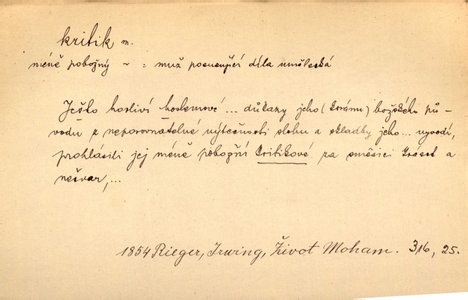 kritik m.
méně pobožný ~ : muž posuzující díla umělecká
Ježto horliví moslemové... důkazy jeho (koránu) božského pů-
vodu z neporovnatelné výtečnosti slohu a skladby jeho... vyvodí,
prohlásili jej méně pobožní kritikové za směsici krás a
nešvar,...
1854 Rieger, Irwing, Život Moham. 316, 25.